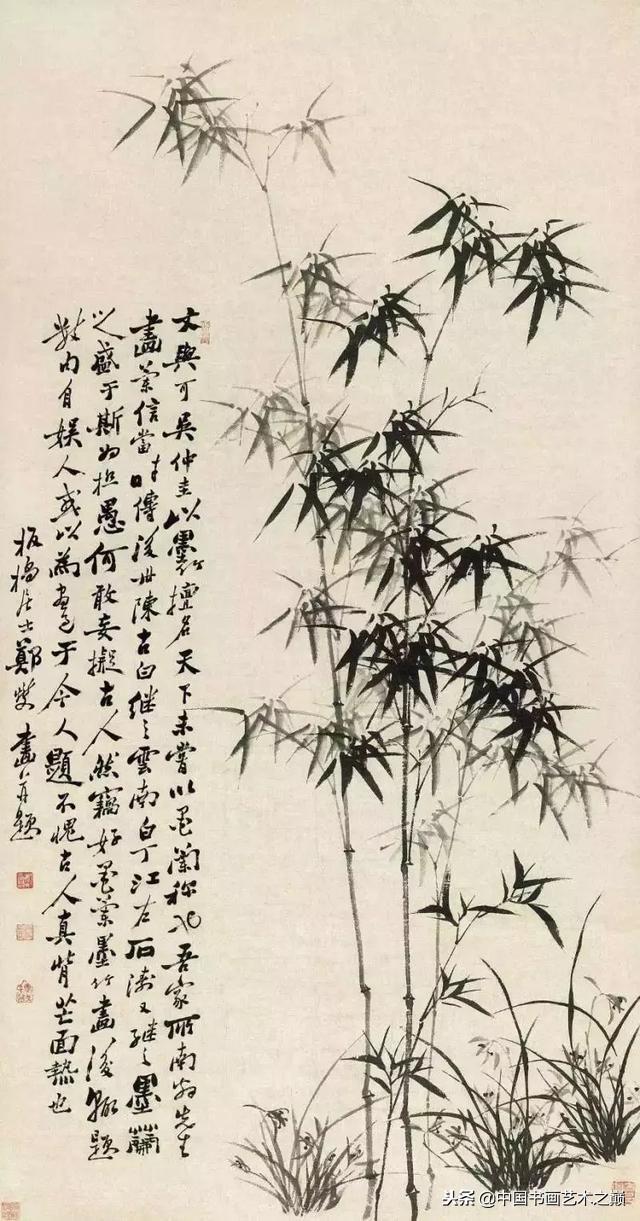 文與可吳仲圭以墨竹擅名天下未嘗以墨蘭稱也吾家所南翁先生
畫蘭信當時傳後世陳古白繼之雲南白丁江右石濤又繼之墨蘭
之盛于斯為極愚何敢妄擬古人然竊好墨蘭墨竹畫後輒題
數句自娛人或以為畫過于今人題不愧古人真背芒面熱也
板橋居士鄭燮畫并題
头条 @中国书画艺术之巅